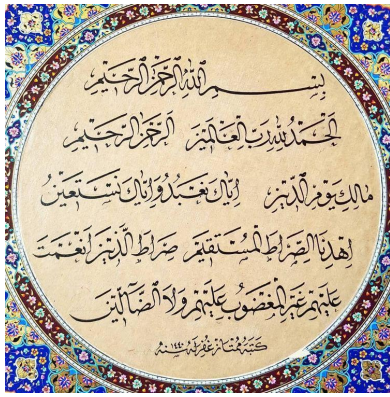 بسم الله الرحمن الرحيم
الحمد لله رب العالمين الرحمن الرحيم
مالك يوم الدين إياك نعبد وإياك نستعين
اهدنا الصراط المستقيم صراط الذين أنعمت
عليهم غير المغضوب عليهم ولا الضآلين
كتبه ممتاز غفر له سنه ١٤٤٠